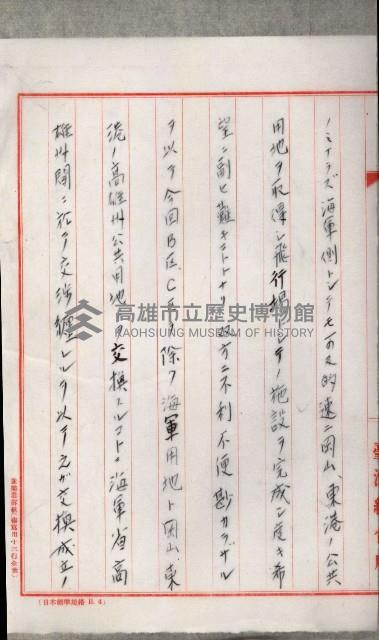 ノミナラズ海軍側トシテモ可及的速ニ岡山、東港ノ公共
用地ヲ取得シ飛行場トシテノ施設ヲ完成シ度キ希
望ニ副ヒ難キコトトナリ双方ニ不利不便尠カラザル
ヲ以テ今回B区、C区ヲ除ク海軍用地ト岡山、東
港ノ高雄州公共用地ヲ交換スルコトニ海軍省高
雄州間ニ於テ交渉纏レルヲ以テ之ガ交換成立ノ
高雄市立歷史博物館
KAOHSIUNG MUSEUM OF HISTORY
(日本標準規格 B.4)